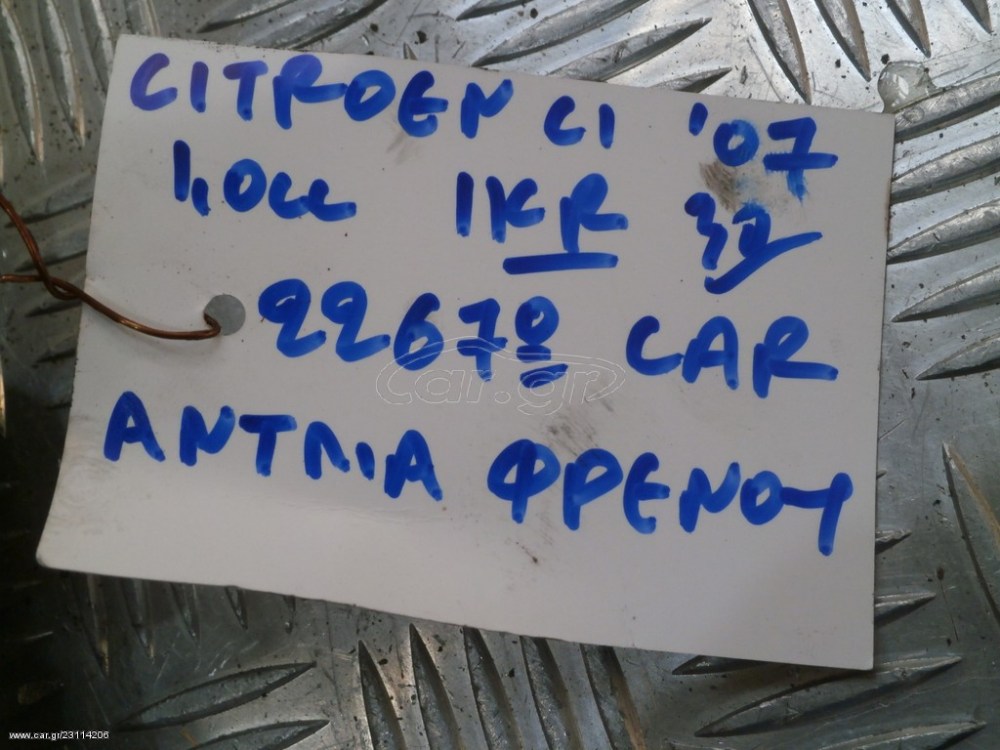 CITROEN C1 '07
1,0cc 1KR
22670 CAR
car.gr
ΑΝΤΛΙΑ ΦΡΕΝΟΥ
www.car.gr/23114206